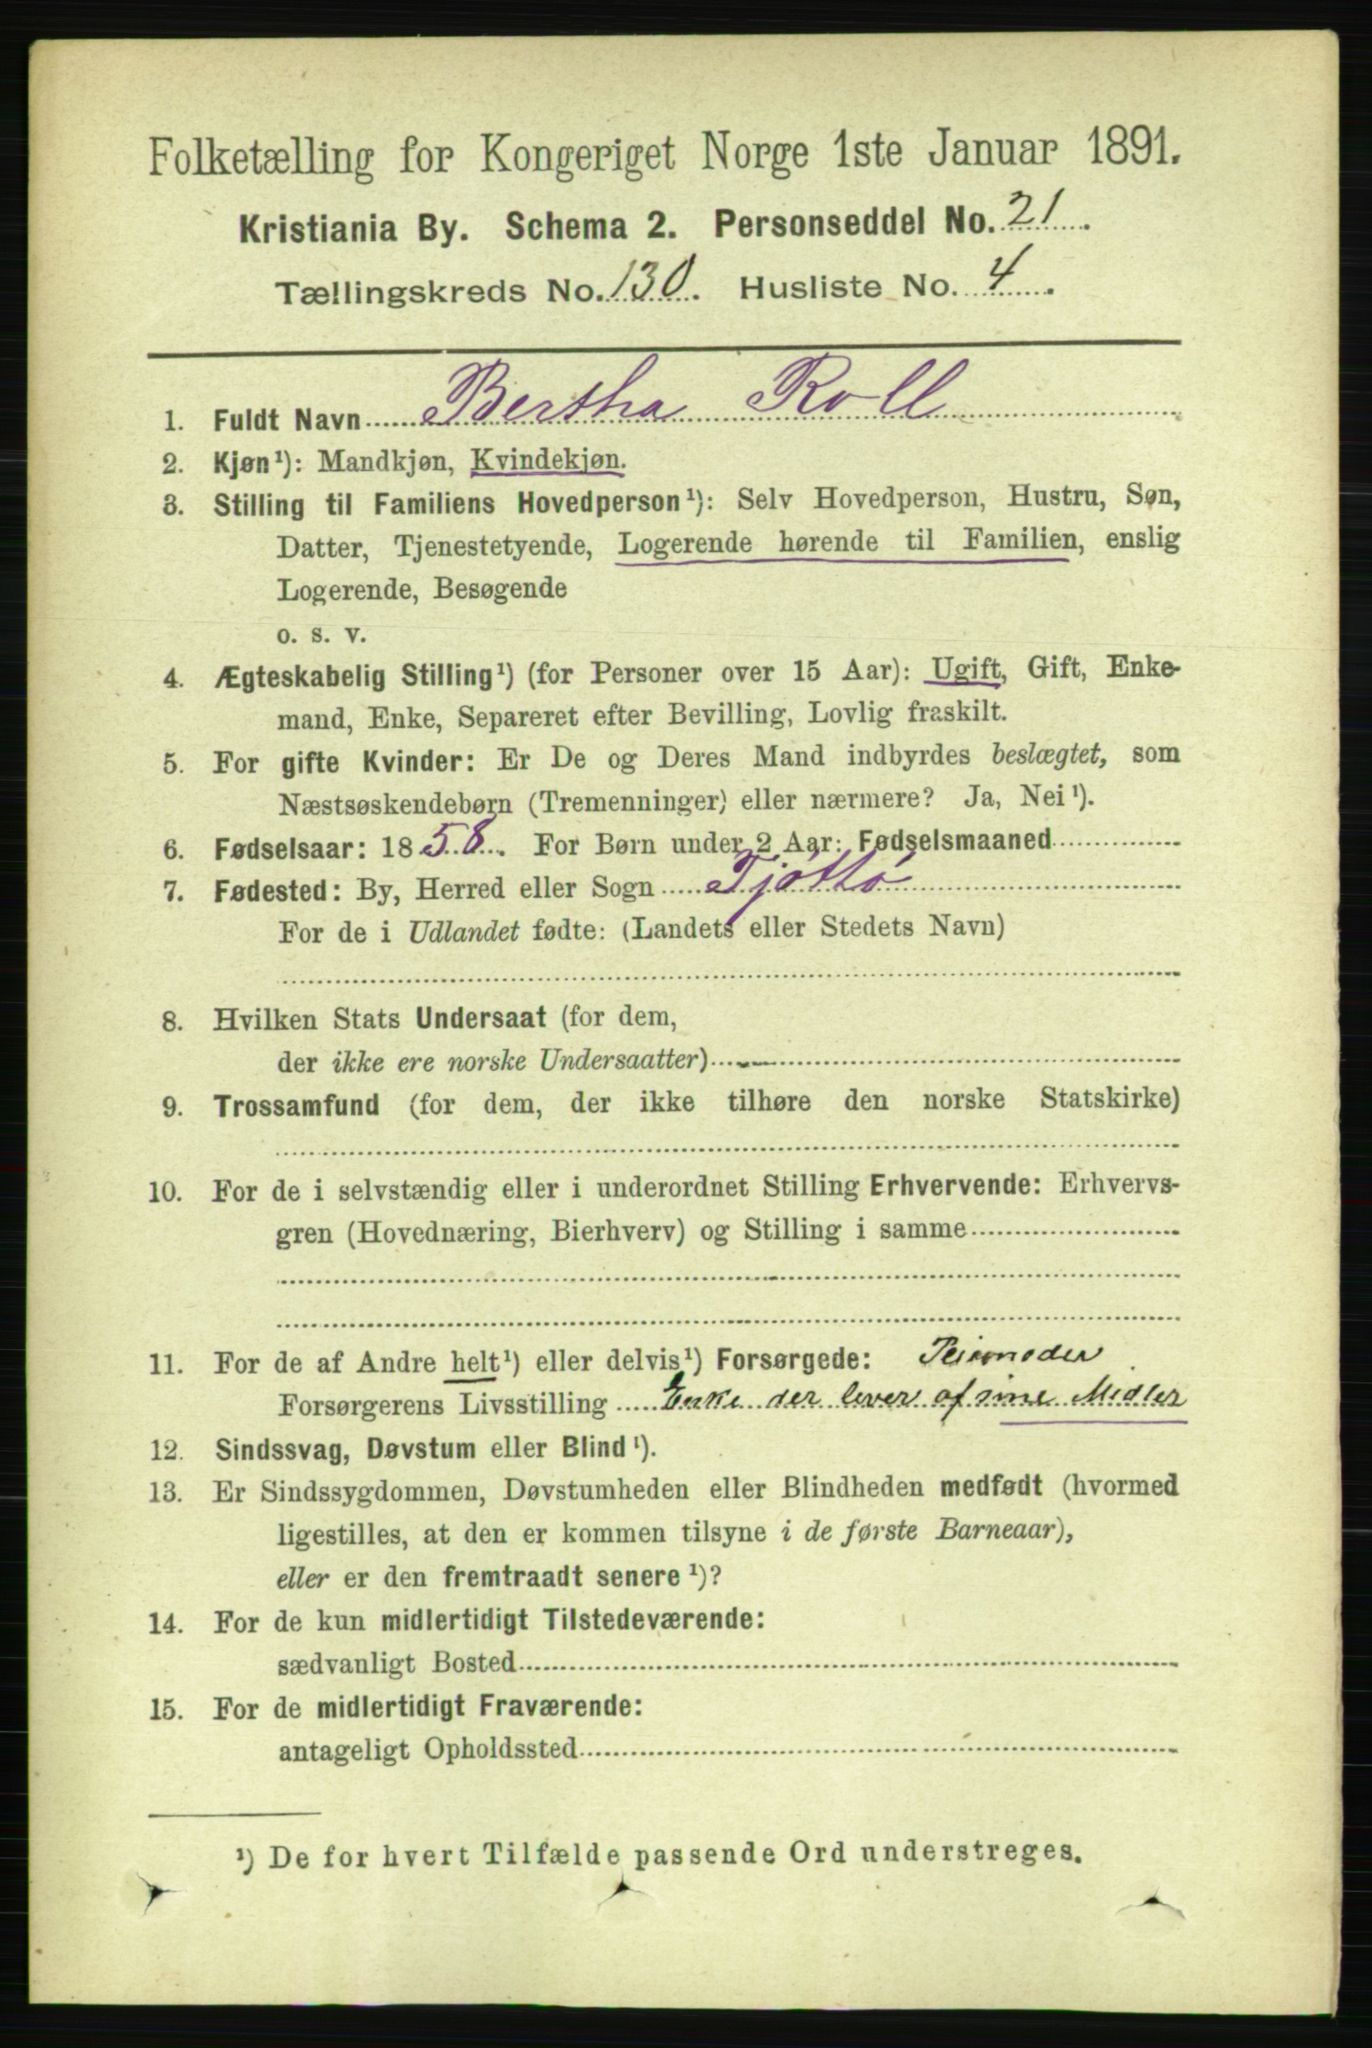 Folketælling for Kongeriget Norge 1ste Januar 1891.
Kristiania By. Schema 2. Personseddel No. 21.
Tællingskreds No. 130. Husliste No. 4.
1. Fuldt Navn Bertha Roll
2. Kjøn¹): Mandkjøn, Kvindekjøn.
3. Stilling til Familiens Hovedperson¹): Selv Hovedperson, Hustru, Søn,
Datter, Tjenestetyende, Logerende hørende til Familien, enslig
Logerende, Besøgende
o. s. v.
4. Ægteskabelig Stilling¹) (for Personer over 15 Aar): Ugift, Gift, Enke-
mand, Enke, Separeret efter Bevilling, Lovlig fraskilt.
5. For gifte Kvinder: Er De og Deres Mand indbyrdes beslægtet, som
Næstsøskendebørn (Tremenninger) eller nærmere? Ja, Nei¹).
6. Fødselsaar: 1858. For Børn under 2 Aar: Fødselsmaaned
7. Fødested: By, Herred eller Sogn Tjøttö
For de i Udlandet fødte: (Landets eller Stedets Navn)
8. Hvilken Stats Undersaat (for dem,
der ikke ere norske Undersaatter)
9. Trossamfund (for dem, der ikke tilhøre den norske Statskirke)
10. For de i selvstændig eller i underordnet Stilling Erhvervende: Erhvervs-
gren (Hovednæring, Bierhverv) og Stilling i samme
11. For de af Andre helt¹) eller delvis¹) Forsørgede:
Forsørgerens Livsstilling Enke der lever af sine Midler
12. Sindssvag, Døvstum eller Blind¹).
13. Er Sindssygdommen, Døvstumheden eller Blindheden medfødt (hvormed
ligestilles, at den er kommen tilsyne i de første Barneaar),
eller er den fremtraadt senere¹)?
14. For de kun midlertidigt Tilstedeværende:
sædvanligt Bosted
15. For de midlertidigt Fraværende:
antageligt Opholdssted
¹) De for hvert Tilfælde passende Ord understreges.